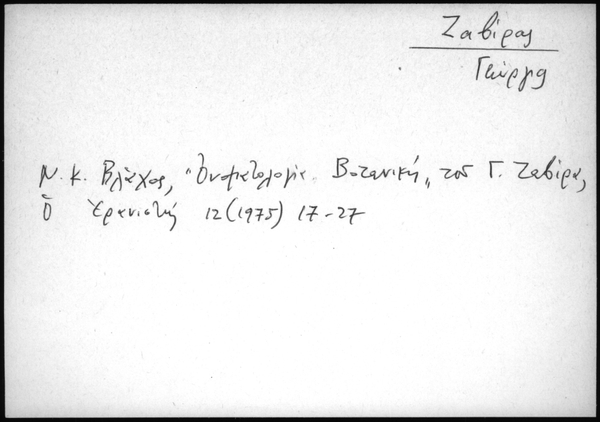 Ζαβίρας
Γεώργης
Ν. Κ. Βλάχος, "Ὀνοματολογία Βοτανική" τοῦ Γ. Ζαβίρα,
Ὁ Ἐρανιστής 12 (1975) 17-27